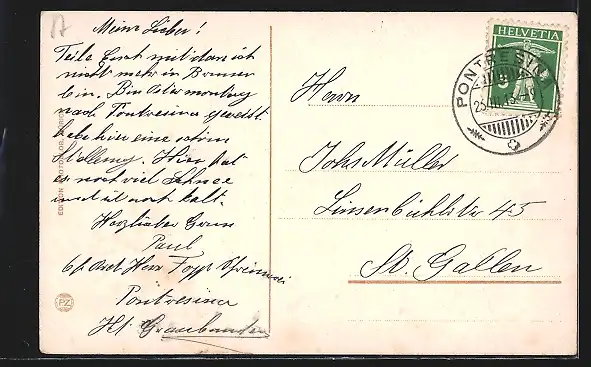 Mein Lieber!
Teile Euch mit dan ich
nicht mehr in Brunnen
bin. Bin Ostermontag
nach Pontresina gereist
habe hier eine schöne
Stellung. Hier hat
es noch viel Schnee
und ist noch kalt.
Herzlicher Gruss
Paul
Adr. Herr
Pontresina
Kt. Graubünden
HELVETIA
PONTRESINA
Herrn
Johs Müller
Linsenbühlstr 45
St. Gallen
EDITION PHOTOGLOB
PZ